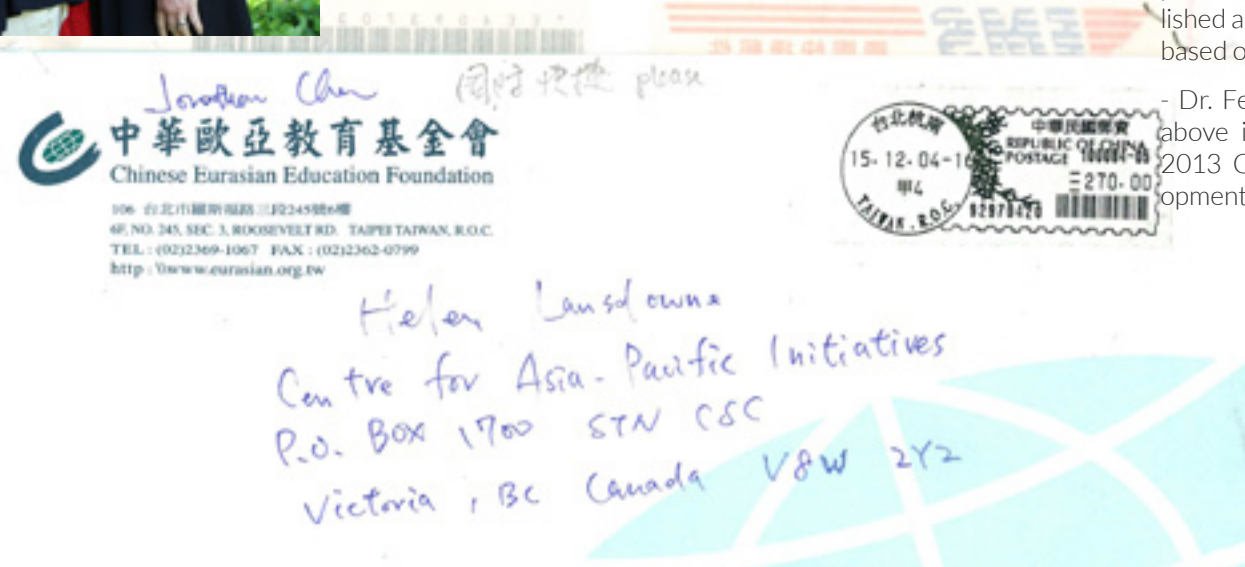 lished a
based o
- Dr. Fe
above i
2013 C
opment
EMS
Jonathan Chen 國際快捷 please
中華歐亞教育基金會
Chinese Eurasian Education Foundation
106 台北市羅斯福路三段245號6樓
6F, NO. 245, SEC. 3, ROOSEVELT RD. TAIPEI TAIWAN, R.O.C.
TEL : (02)2369-1067 FAX : (02)2362-0799
http : \\www.eurasian.org.tw
台北杭南
15.12.04-16
甲4
TAIWAN, R.O.C.
中華民國郵資
REPUBLIC OF CHINA
POSTAGE
270.00
92970420
Helen Lansdowne
Centre for Asia-Pacific Initiatives
P.O. Box 1700 STN CSC
Victoria, BC Canada V8W 2Y2